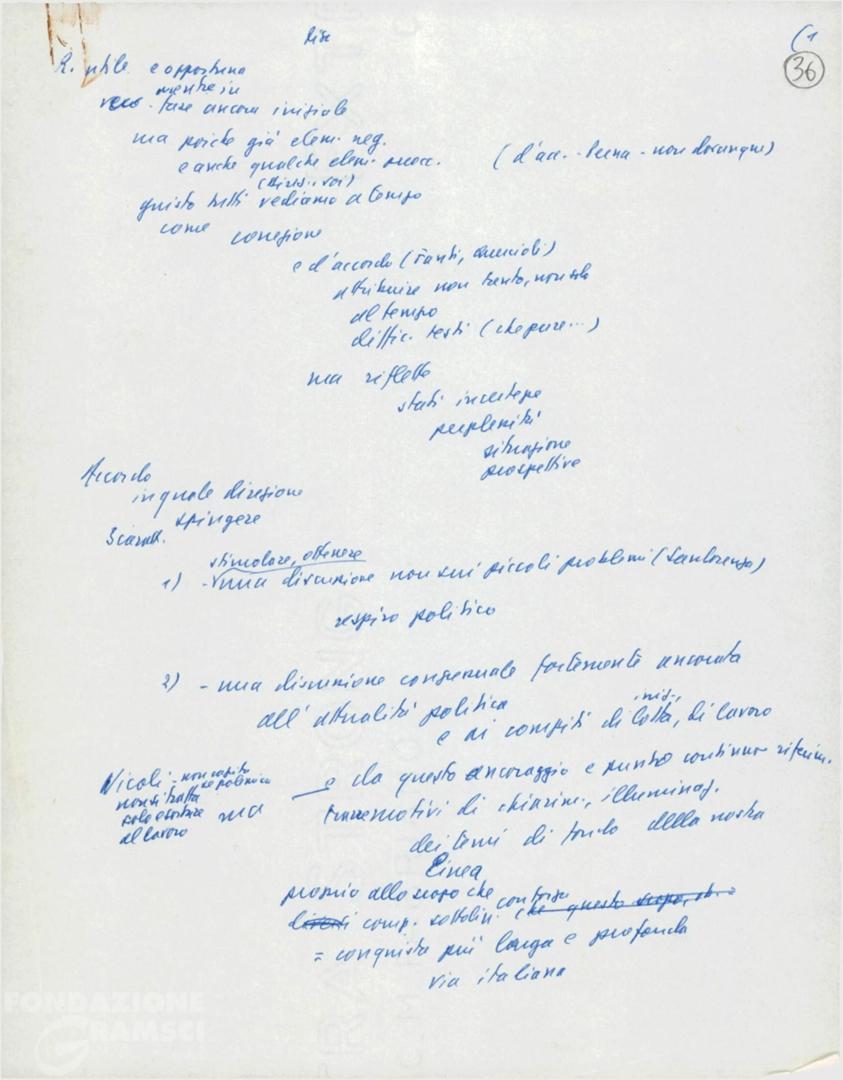 Ris
(1
36
R. utile e opportuna
mentre in
fase ancora iniziale
ma poiché già elem. neg.
e anche qualche elem. preocc.
(d'acc. - Perna - non dovunque)
giusto tutti vediamo a tempo
come correzione
e d'accordo (Tanti,
attribuire non tanto, non solo
al tempo
diffic. testi (che pure...)
ma riflette
stati incertezze
perplessità
situazione
prospettive
Accordo
in quale direzione
spingere
Scarab.
stimolare, ottenere
1) - una discussione non sui piccoli problemi (Sanlorenzo)
respiro politico
2) - una discussione congressuale fortemente ancorata
all'attualità politica
iniz.,
e ai compiti di lotta, di lavoro
Nicoli - non capito
se polemica
non si tratta
solo esortare
al lavoro
ma
e da questo ancoraggio e punto continuo riferim.
trarre motivi di chiarim., illuminaz.
dei temi di fondo della nostra
linea
proprio allo scopo che
comp. sottolin. che questo scopo,
= conquista più larga e profonda
via italiana
FONDAZIONE
GRAMSCI